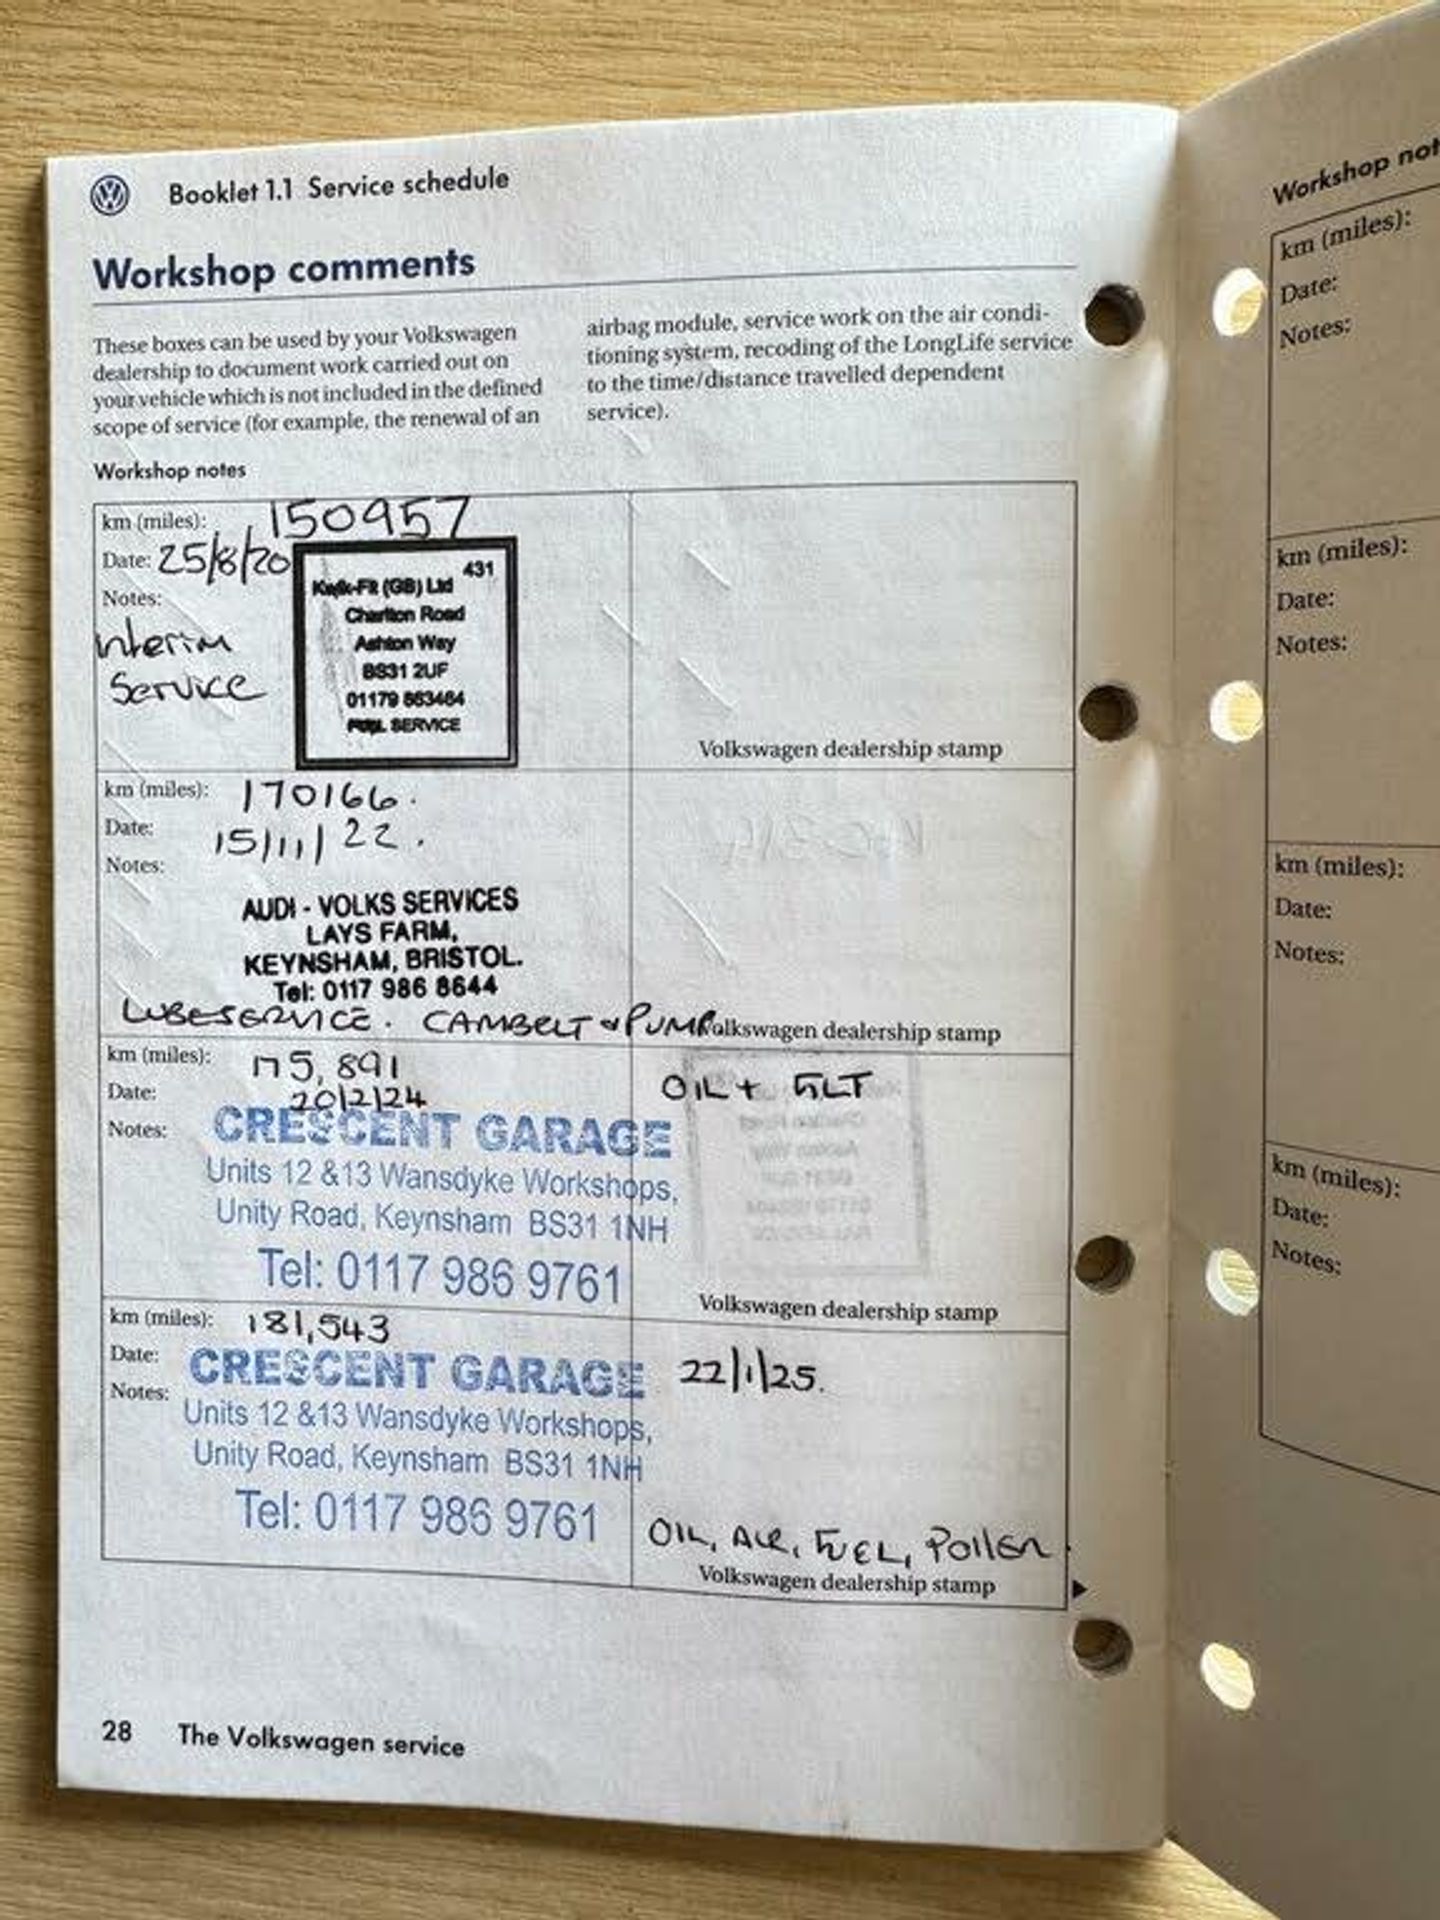 Booklet 1.1 Service schedule
Workshop comments
These boxes can be used by your Volkswagen
dealership to document work carried out on
your vehicle which is not included in the defined
scope of service (for example, the renewal of an
airbag module, service work on the air condi-
tioning system, recoding of the LongLife service
to the time/distance travelled dependent
service).
Workshop notes
km (miles): 150957
Date: 25/8/20
Notes:
Interim
Service
431
Kwik-Fit (GB) Ltd
Charlton Road
Ashton Way
BS31 2UF
01179 863464
FULL SERVICE
Volkswagen dealership stamp
km (miles): 170166.
Date: 15/11/22.
Notes:
AUDI - VOLKS SERVICES
LAYS FARM,
KEYNSHAM, BRISTOL.
Tel: 0117 986 8644
LUBESERVICE. CAMBELT + PUMP
Volkswagen dealership stamp
km (miles): 175,891
Date: 20/2/24
Notes:
CRESCENT GARAGE
Units 12 &13 Wansdyke Workshops,
Unity Road, Keynsham BS31 1NH
Tel: 0117 986 9761
OIL + FILT
Volkswagen dealership stamp
km (miles): 181,543
Date:
Notes:
CRESCENT GARAGE
Units 12 &13 Wansdyke Workshops,
Unity Road, Keynsham BS31 1NH
Tel: 0117 986 9761
22/1/25.
OIL, AIR, FUEL, POllEN
Volkswagen dealership stamp
28 The Volkswagen service
Workshop not
km (miles):
Date:
Notes:
km (miles):
Date:
Notes:
km (miles):
Date:
Notes:
km (miles):
Date:
Notes: